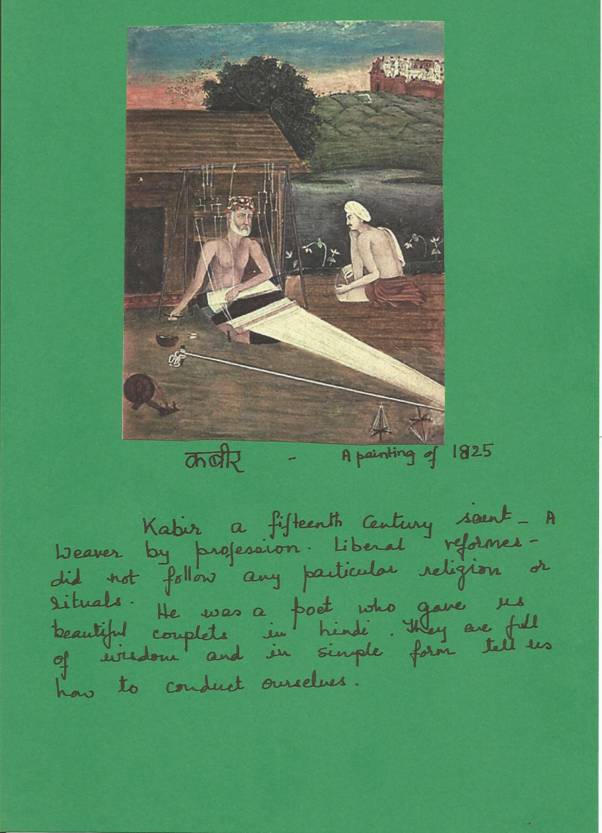 कबीर - A painting of 1825
Kabir a fifteenth Century saint - A
Weaver by profession. Liberal reformer -
did not follow any particular religion or
rituals. He was a poet who gave us
beautiful couplets in hindi. They are full
of wisdom and in simple form tell us
how to conduct ourselves.